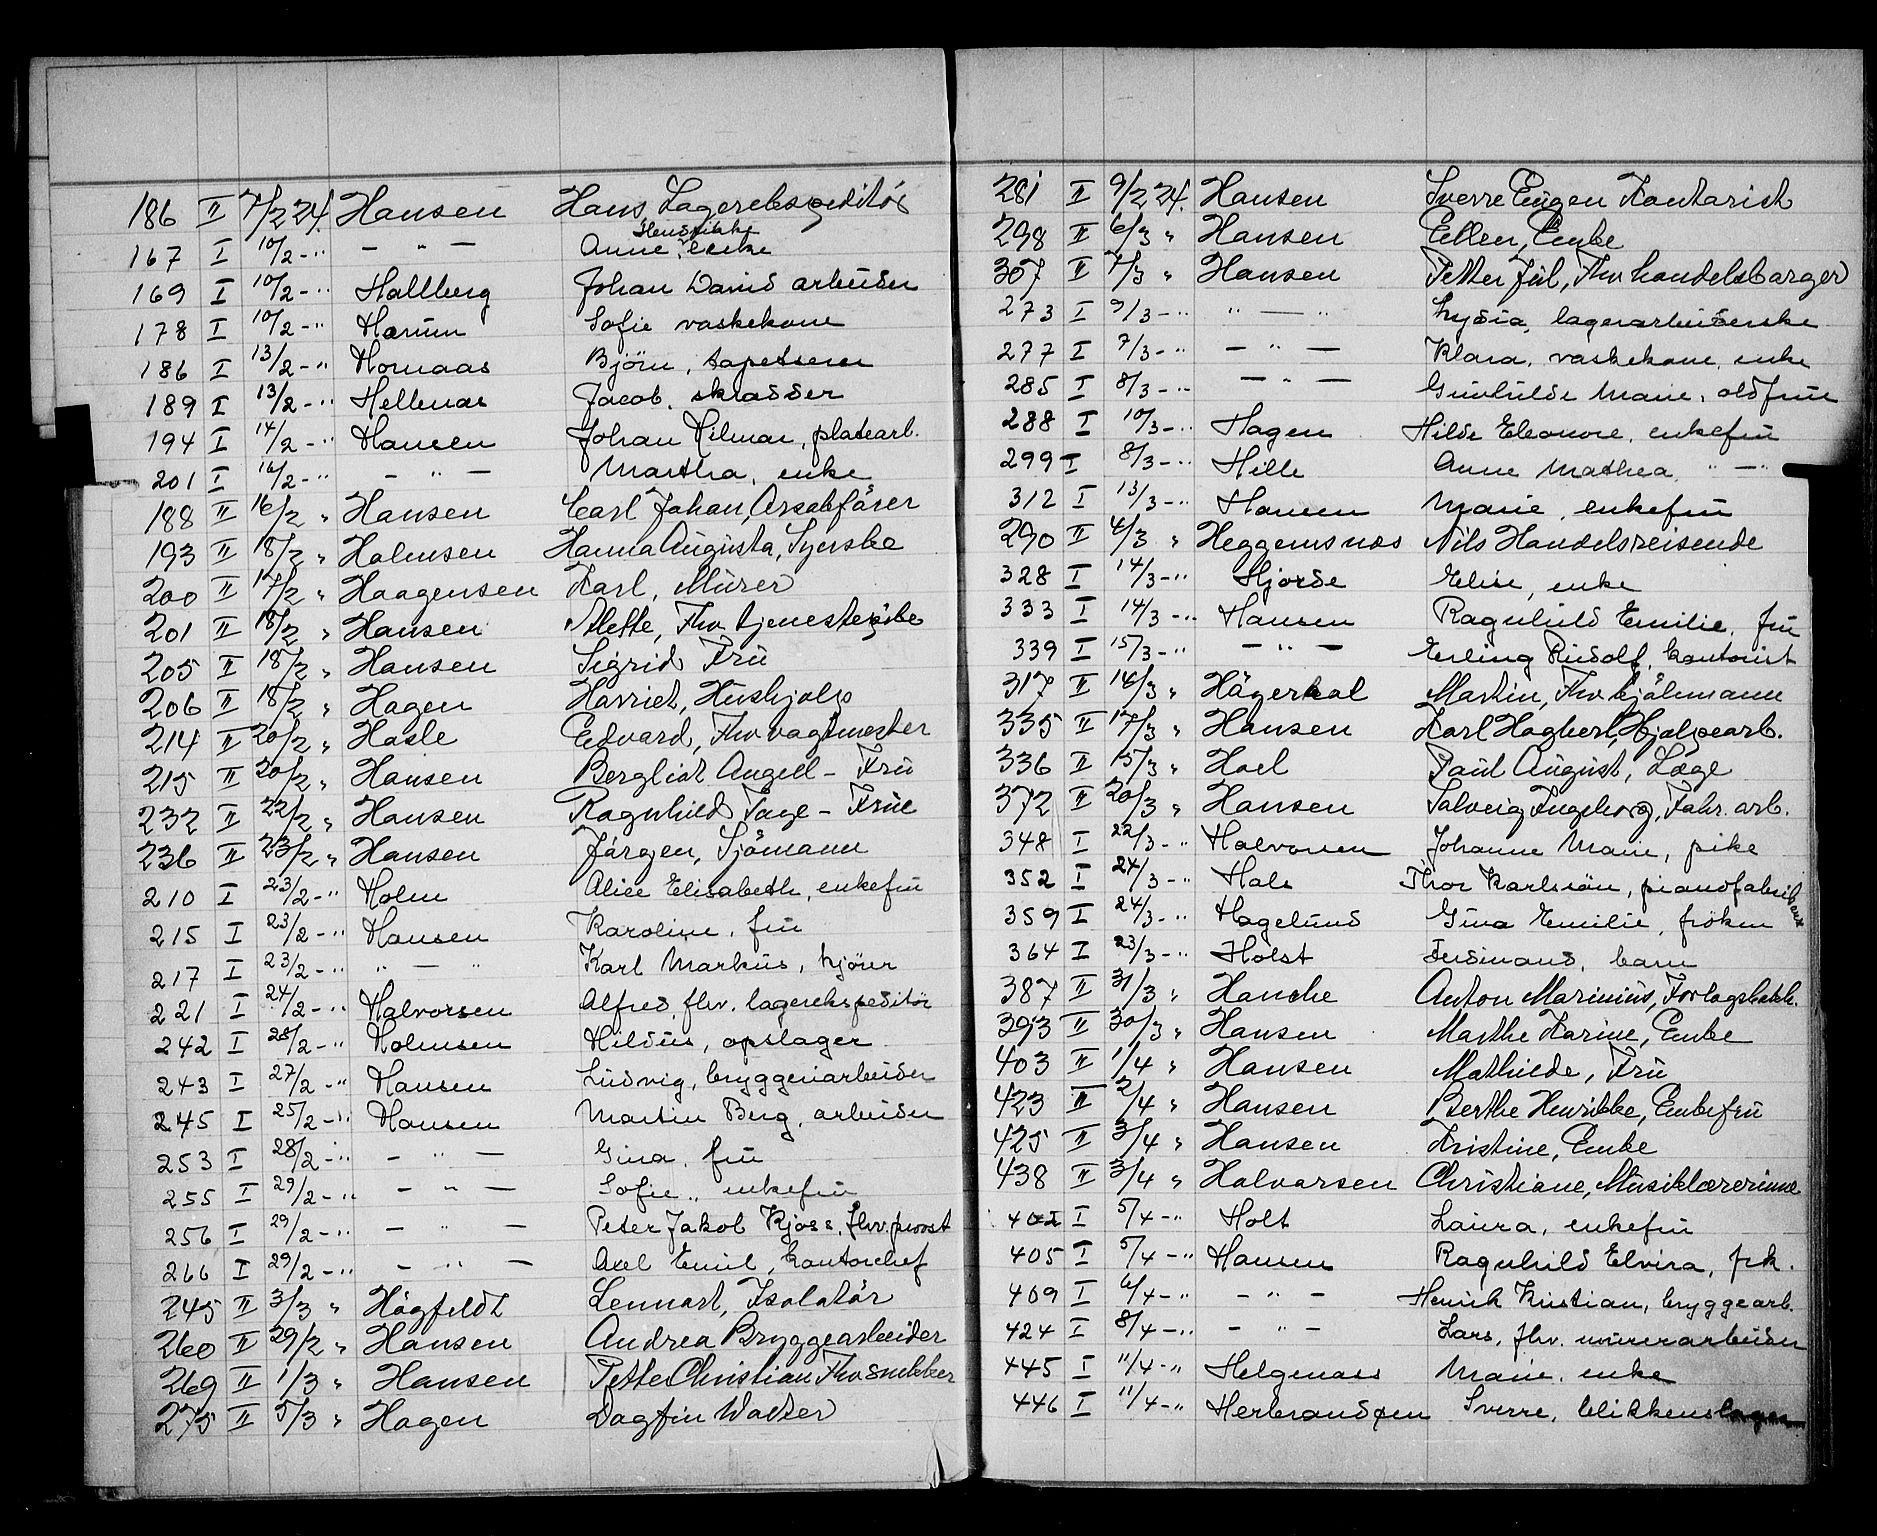 186 II 7/2 24. Hansen Hans Lagerekspeditör
167 I 10/2 - " — " — Anne Hendrikke enke
169 I 10/2 - " Hallberg Johan David arbeider
178 I 10/2 - " Hærum Sofie vaskekone
186 I 13/2 - " Hornaas Björn, tapetserer
189 I 13/2 - " Hellenas Jacob, skrædder
194 I 14/2 - " Hansen Johan Hilmar, platearb.
201 I 16/2 - " — " — Martha, enke
188 II 16/2 " Hansen Carl Johan,
193 II 18/2 " Holmsen Hanna Augusta, Syerske
200 II 17/2 " Haagensen Karl, Mürer
201 II 18/2 " Hansen Mette, Fhv tjenestepike
205 II 18/2 " Hansen Sigrid Frü
206 II 18/2 " Hagen Harriet, Hushjelp
214 II 20/2 " Hasle Edvard, Fhv vagtmester
215 II 20/2 " Hansen Bergliot Angell - Frü
232 II 22/2 " Hansen Ragnhild Tage - Früe
236 II 23/2 " Hansen Jörgen, Sjömann
210 I 23/2 - " Holm Alice Elisabeth, enkefrü
215 I 23/2 - " Hansen Karoline, frü
217 I 23/2 - " " — " Karl Markus, kjörer
221 I 24/2 - " Halvorsen Alfred, fhv. lagerekspeditör
242 I 28/2 - " Holmsen Hildus, opslager
243 I 27/2 - " Hansen Ludvig, bryggeriarbeider
245 I 25/2 - " Hansen Martin Berg, arbeider
253 I 28/2 - " — " — Gina, frü
255 I 29/2 - " — " — Sofie, enkefrü
256 I 29/2 - " — " — Peter Jakob Kjøss, fhv. provst
266 I 29/2 - " — " — Axel Emil, kontorchef
245 II 3/3 " Högfeldt Lennart, Isolatör
260 II 29/2 " Hansen Andrea Bryggearbeider
269 II 1/3 " Hansen Petter Christian Fhv snekker
275 II 5/3 " Hagen Dagfin Walter
281 II 9/2 24. Hansen Sverre Eugen Kontorist
298 II 6/3 " Hansen Ellen, Enke
307 II 7/3 " Hansen Petter Jül, Fhv handelsborger
273 I 9/3 - " " — " Lydia, lagerarbeiderske
277 I 7/3 - " — " — Klara, vaskekone, enke
285 I 8/3 - " — " — Gunhilde Marie, oldfrue
288 I 10/3 - " Hagen Hilde Eleonore, enkefrü
299 I 8/3 - " Hille Anne Mathea, " — "
312 I 13/3 - " Hansen Marie, enkefrü
290 II 4/3 " Heggemsnes Nils Handelsreisende
328 I 14/3 - " Hjorde Elise, enke
333 I 14/3 - " Hansen Ragnhild Emilie, frü
339 I 15/3 - " — " — Erling Rudolf, kontorist
317 II 14/3 " Hägerhal Martin, Fhv
335 II 17/3 " Hansen Karl Hagbert, Hjelpearb.
336 II 15/3 " Hoel Paul August, Læge
372 II 20/3 " Hansen Solveig Ingeborg, Fabr. arb.
348 I 22/3 - " Halvorsen Johanne Marie, pike
352 I 24/3 - " Hals Thor Karlsön, pianofabrikant
359 I 24/3 - " Hagelund Gina Emilie, fröken
364 I 23/3 - " Holst Ferdinand, barn
387 II 31/3 " Hanche Anton Marinius, Forlagsbokh.
393 II 30/3 " Hansen Marthe Karine, Enke
403 II 1/4 " Hansen Mathilde, Frü
423 II 2/4 " Hansen Berthe Henrikke, Enkefrü
425 II 3/4 " Hansen Kristine, Enke
438 II 3/4 " Halvorsen Christiane, Müsiklærerinne
402 I 5/4 - " Holt Laura, enkefrü
405 I 5/4 - " Hansen Ragnhild Elvira, frk.
409 I 6/4 - " — " — Henrik Kristian, bryggearb.
424 I 8/4 - " — " — Lars, fhv. murerarbeider
445 I 11/4 - " Helgenæs Marie, enke
446 I 11/4 - " Herbrandsen Sverre, blikkenslager